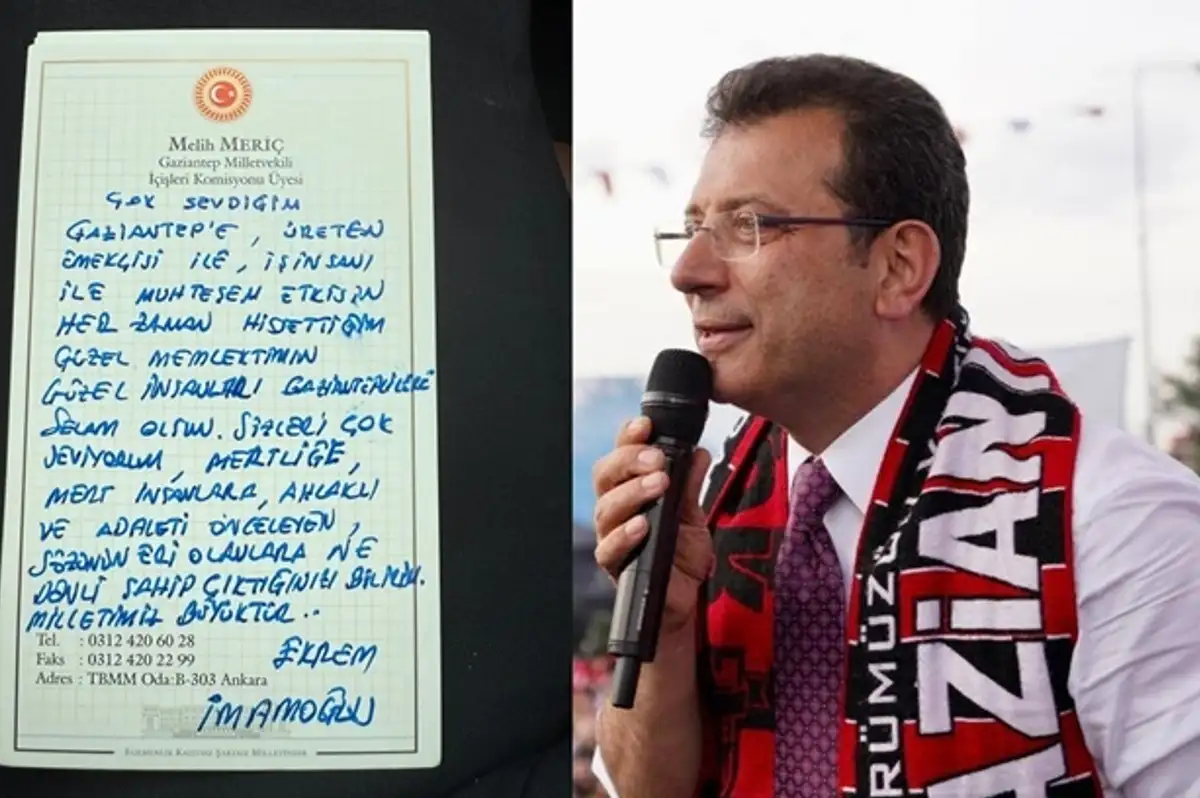 Melih MERİÇ
Gaziantep Milletvekili
İçişleri Komisyonu Üyesi
ÇOK SEVDİĞİM
GAZİANTEP'E, ÜRETEN
EMEKÇİSİ İLE, İŞİNSANI
İLE MUHTEŞEM ETKİSİN
HER ZAMAN HİSSETTİĞİM
GÜZEL MEMLEKTİMİN
GÜZEL İNSANLARI GAZİANTEPLİLERE
SELAM OLSUN. SİZLERİ ÇOK
SEVİYORUM, MERTLİĞE,
MERT İNSANLARA, AHLAKLI
VE ADALETİ ÖNCELEYEN,
SÖZÜNÜN ERİ OLANLARA NE
DENLİ SAHİP ÇIKTIĞINIZI BİLİRİM.
MİLLETİMİZ BÜYÜKTÜR..
Tel. : 0312 420 60 28
Faks : 0312 420 22 99
Adres : TBMM Oda:B-303 Ankara
EKREM
İMAMOĞLU
EGEMENLİK KAYITSIZ ŞARTSIZ MİLLETİNDİR
RÜMÜZÜ
AZİAN
AZİ